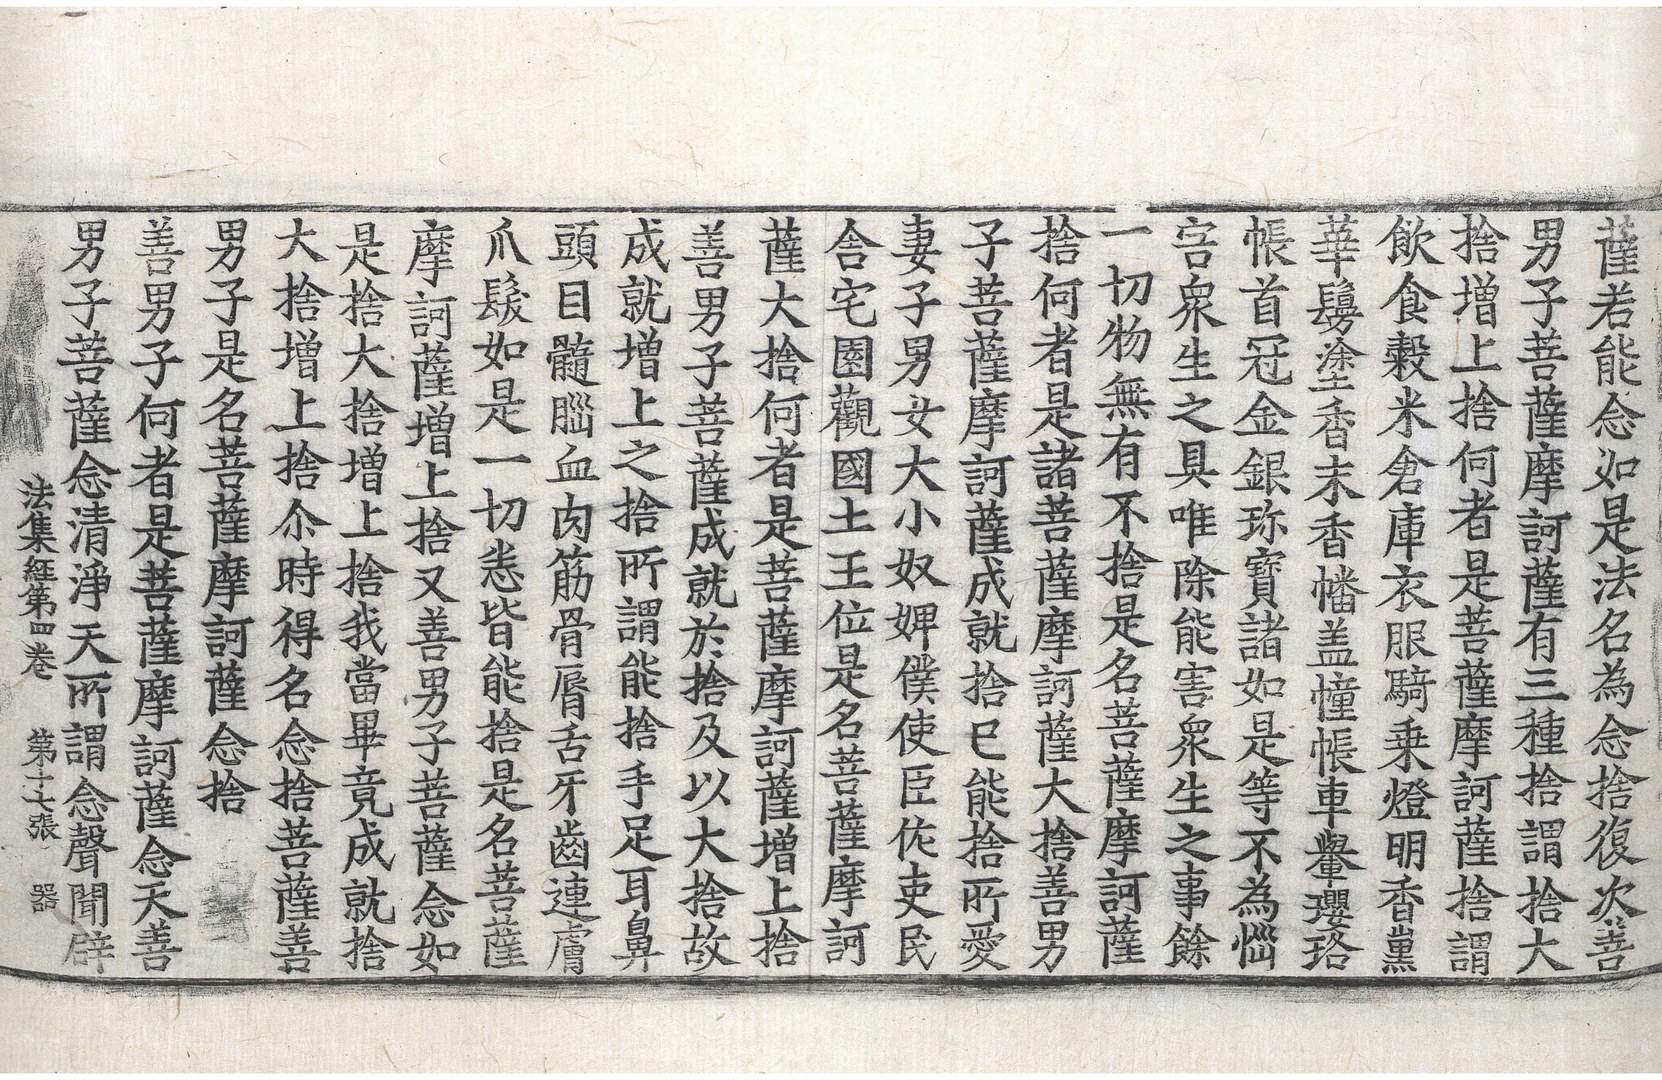 薩若能念如是法名為念捨復次善
男子菩薩摩訶薩有三種捨謂捨大
捨增上捨何者是菩薩摩訶薩捨謂
飲食穀米倉庫衣服騎乗燈明香薫
華鬘塗香末香幡盖幢帳車轝瓔珞
帳首冠金銀珎寶諸如是等不為惱
害衆生之具唯除能害衆生之事餘
一切物無有不捨是名菩薩摩訶薩
捨何者是諸菩薩摩訶薩大捨善男
子菩薩摩訶薩成就捨已能捨所愛
妻子男女大小奴婢僕使臣佐吏民
舍宅園觀國土王位是名菩薩摩訶
薩大捨何者是菩薩摩訶薩增上捨
善男子菩薩成就於捨及以大捨故
成就增上之捨所謂能捨手足耳鼻
頭目髓腦血肉筋骨脣舌牙齒連膚
爪髮如是一切悉皆能捨是名菩薩
摩訶薩增上捨又善男子菩薩念如
是捨大捨增上捨我當畢竟成就捨
大捨增上捨尒時得名念捨菩薩善
男子是名菩薩摩訶薩念捨
善男子何者是菩薩摩訶薩念天善
男子菩薩念清淨天所謂念聲聞辟
法集経第四巻 第十七張 器